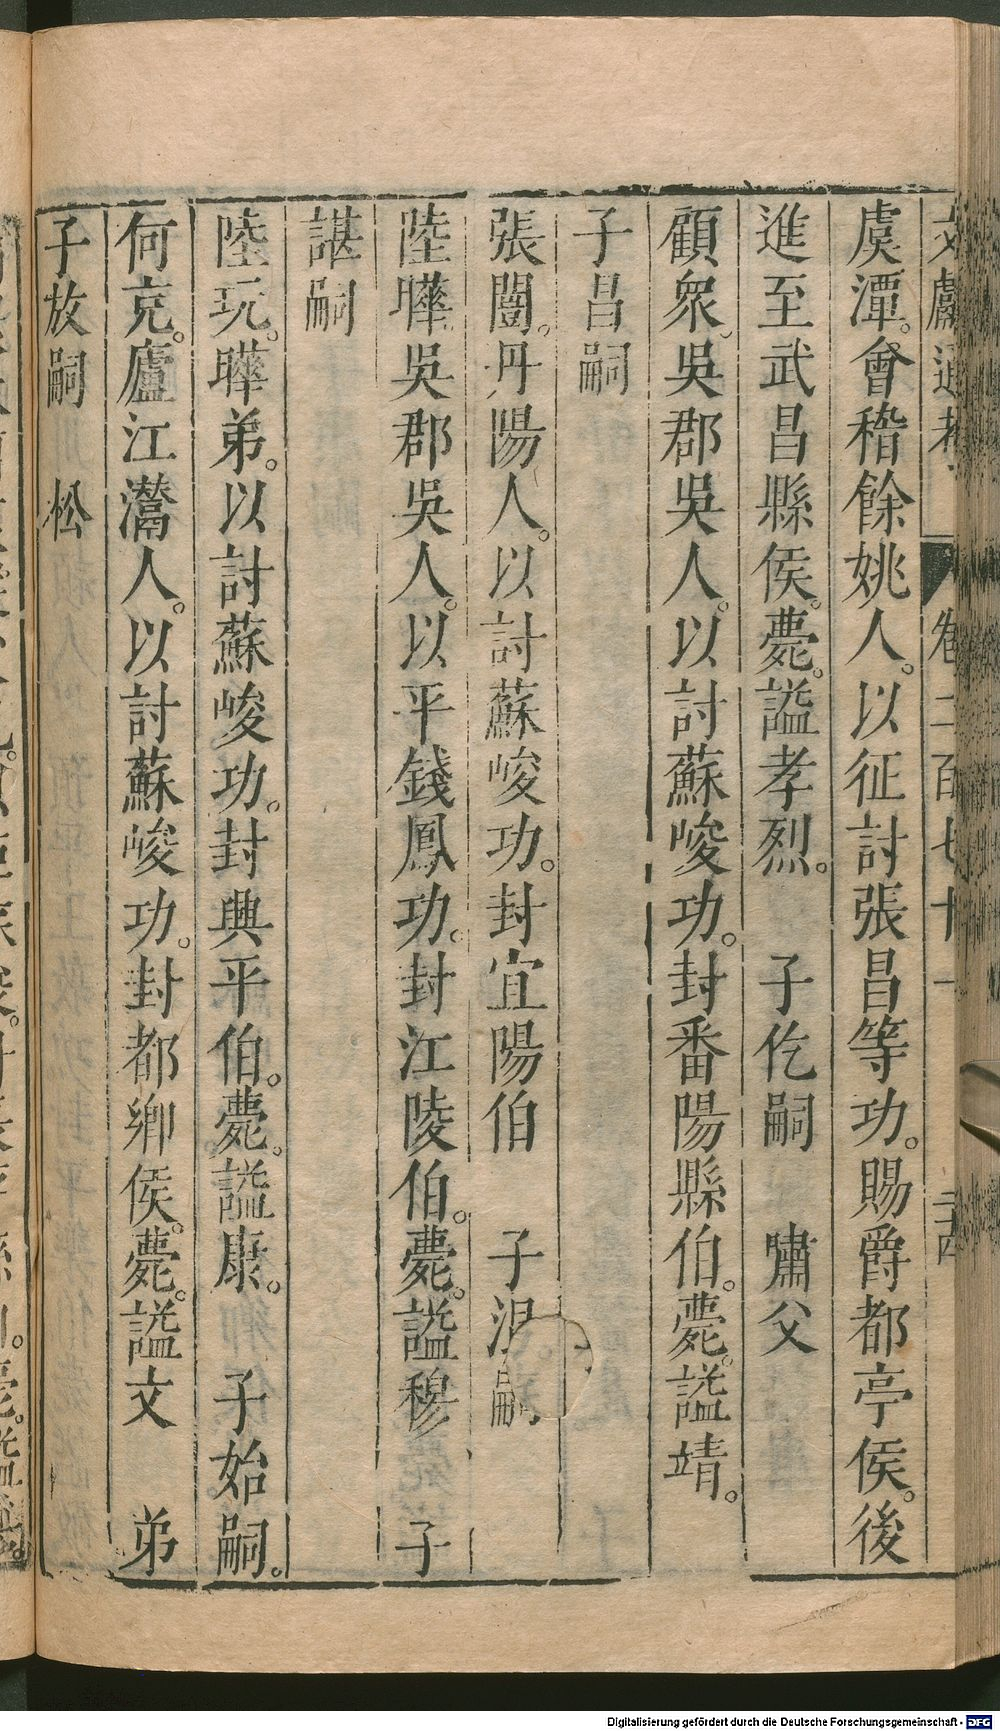 文獻通考 卷二百七十一 二十四
虞潭。會稽餘姚人。以征討張昌等功。賜爵都亭侯。後
進至武昌縣侯。薨。謚孝烈。 子仡嗣 嘯父
顧眾。吳郡吳人。以討蘇峻功。封番陽縣伯。薨。謚靖。
子昌嗣
張闓。丹陽人。以討蘇峻功。封宜陽伯 子混嗣
陸曄吳郡吳人。以平錢鳳功。封江陵伯。薨。謚穆 子
諶嗣
陸玩。曄弟。以討蘇峻功。封興平伯。薨。謚康。 子始嗣。
何充。廬江灊人。以討蘇峻功。封都鄉侯。薨。謚文 弟
子放嗣 松
Digitalisierung gefördert durch die Deutsche Forschungsgemeinschaft - DFG